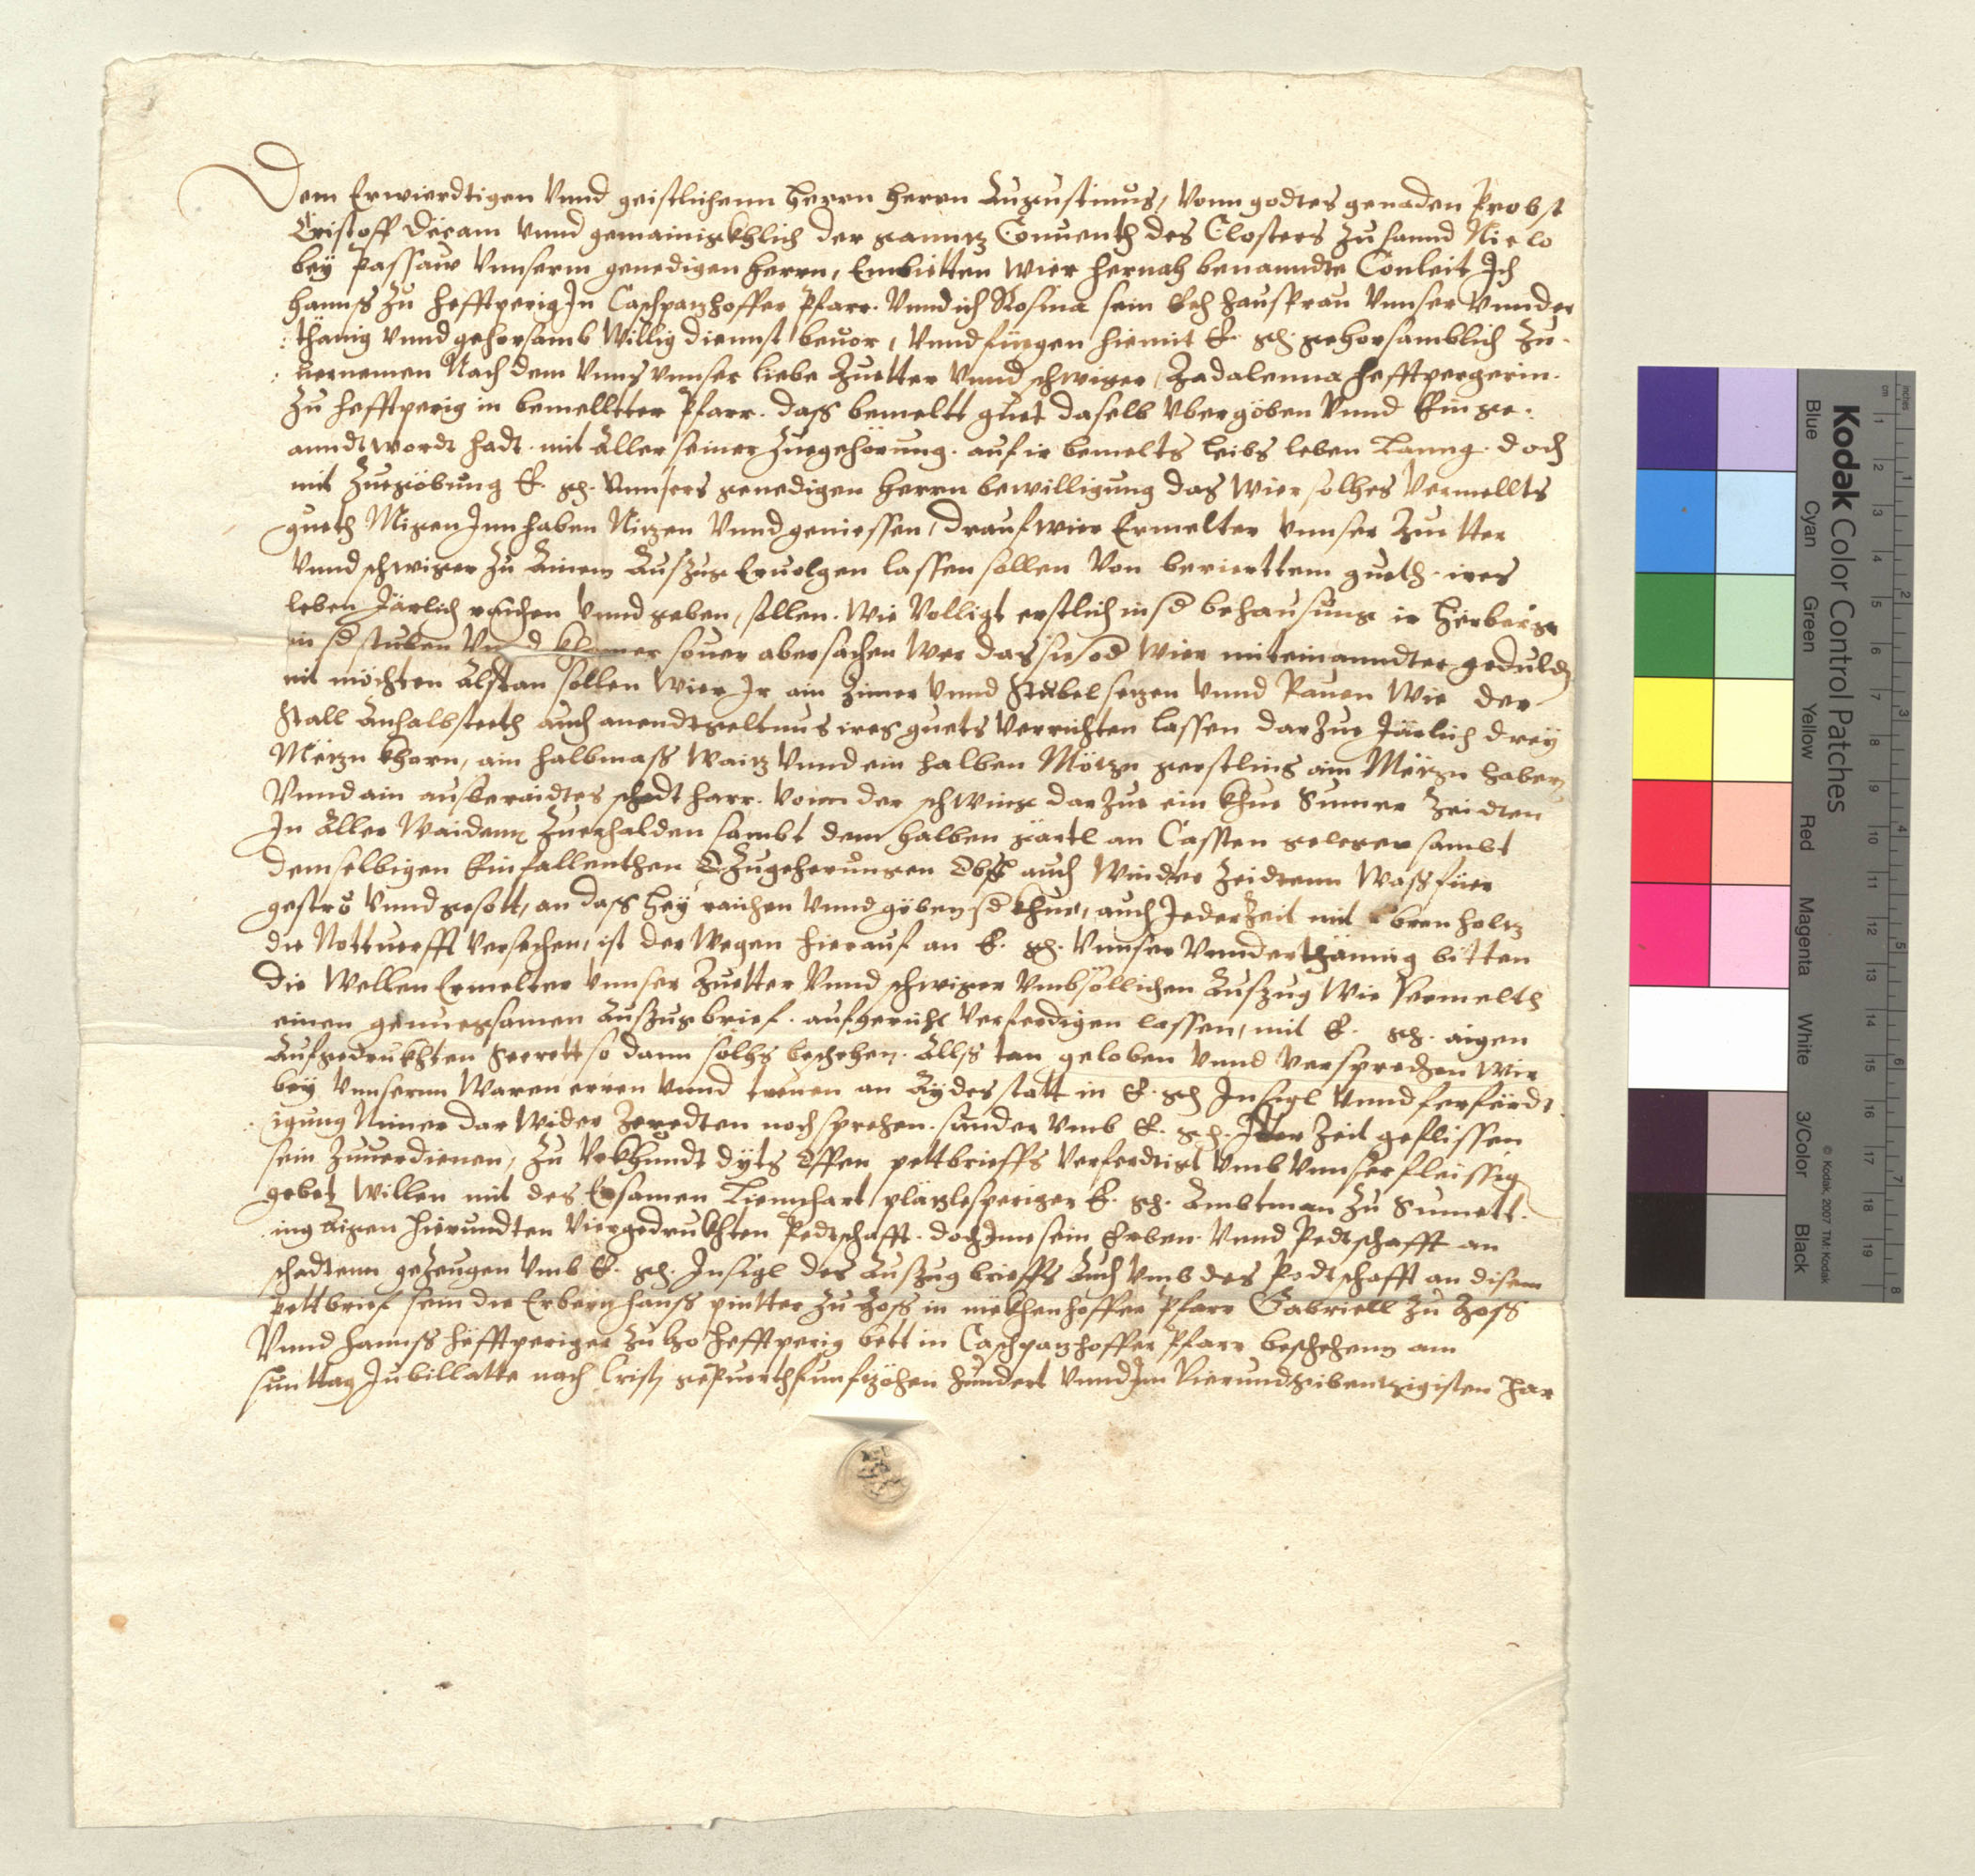 Dem Erwierdtigen Vnnd geistlichenn herrn herrn Augustinus, Vonn godtes genaden Probst
Cristoff Decam Vnnd gemainigkhlich der ganntz Conuenth des Closters zu sannd Niclo
bey Passaw Vnnserm genedigen herrn, Embietten Wier hernach benanndte Conleit Ich
hannß zu hefftperig In Caschpatzhoffer Pfarr. Vnnd ich Rosina sein Ech hausfrau Vnnser Vnnder
thänig Vnnd gehorsamb Willig diennst beuor, Vnnd fiegen hiemit E. gh. gehorsamblich zu
uernemen Nach dem Vnns Vnnser liebe Muetter Vnnd schwiger, Madalenna hefftpergerin
zu hefftperig in bemelltter Pfarr. daß bemeltt guet daselb Vbergöben Vnnd Einge
anndtwordt hadt. mit Aller seiner Zuegehörung. auf ir bemelts leibs leben Lanng. doch
mit Zuegöbung E. gh. Vnnsers genedigen herrn bewilligung das Wier solhes Vermellts
gueth Migen Innhaben Nitzen Vnnd geniessen, drauf wier Ermelter Vnnser Muetter
Vnnd schwiger zu Ainem Auszug Eruolgen lassen sollen Von berierttem gueth. ires
leben Järlich raichen Vnnd geben, sollen. Wie Volligt erstlich in d behausung ir herberge
in d stuben Vnnd klamer souer aber sachen Wer das sie od Wier miteinanndter geduldh
nit möchten Alßtan sollen Wier Ir ain Zimer Vnnd Stübel setzen Vnnd Pauen Wie der
Stall Anhalbsteeth auch anendtgeltnus ires guets Verrichten lassen darzue Järlich drey
Metzn khorn, ain halbmass Waitz Vnnd ein halben Mötzn gerstlins ain Metzn habern
Vnnd ain ausberaidtes schedt harr. Vonn der schwing darzue ein khue Sumer Zeidten
In Aller Waidenn Zuerhalden sambt dem halben gärtl an Cassten gelegen sambt
demselbigen Einfallenthen Zugeherungen Obst auch Windter Zeidtenn Waß fuer
geströ Vnnd gesott, an daß hey raichen Vnnd göben d khue, auch Jederzeit mit bren holtz
die Nottuerfft Versechen, ist der Wegen hierauf an E. gh. Vnnser Vnnderthänig bitten
die Wellen Ermelter Vnnser Muetter Vnnd schwiger Vmb söllichen Auszug Wie Vermelth
einen genuegsamen Auszugbrief. aufgericht Verferdigen lassen, mit E. gh. aigen
Aufgedrukhten Secrett so dann solhs beschehen. Allß tan geloben Vnnd Versprechen Wir
bey Vnnserm Waren erren Vnnd treuen an Aydes statt in E. gh Insigl Vnnd ferferdt
igung Nimer dar Wider Zeredten noch sprehen. sunder Vmb E. gh. Jder Zeit geflissen
sein Zuuerdienen, Zu Vrkhundt dyts Offen pettbrieffs Verferdtigt Vmb Vnnser fleissig
gebet Willen mit des Ersamen Liennhart plätzlesperiger E. gh. Ambtman zu Sumett
ing Aigen hierundten Viergedrukhten Pedtschafft. doch Ime sein Erben. Vnnd Pedtschafft an
schedtenn gezeugen Vmb E. gh. Insigl des Auszug brieffs Auch Vmb des Pedtschafft an disem
pettbrief sein die Erbern hanß pintter zu Moß in mëkhenhoffer Pfarr Gabriell zu Moß
Vnnd hannß hefftperiger zu hefftperig bett in Caschpatzhoffer Pfarr beschehenn am
sunttag Jubillatte nach Cristj gepuerth funfzöhen hundert Vnnd Im Vierundsibentzigisten Jar